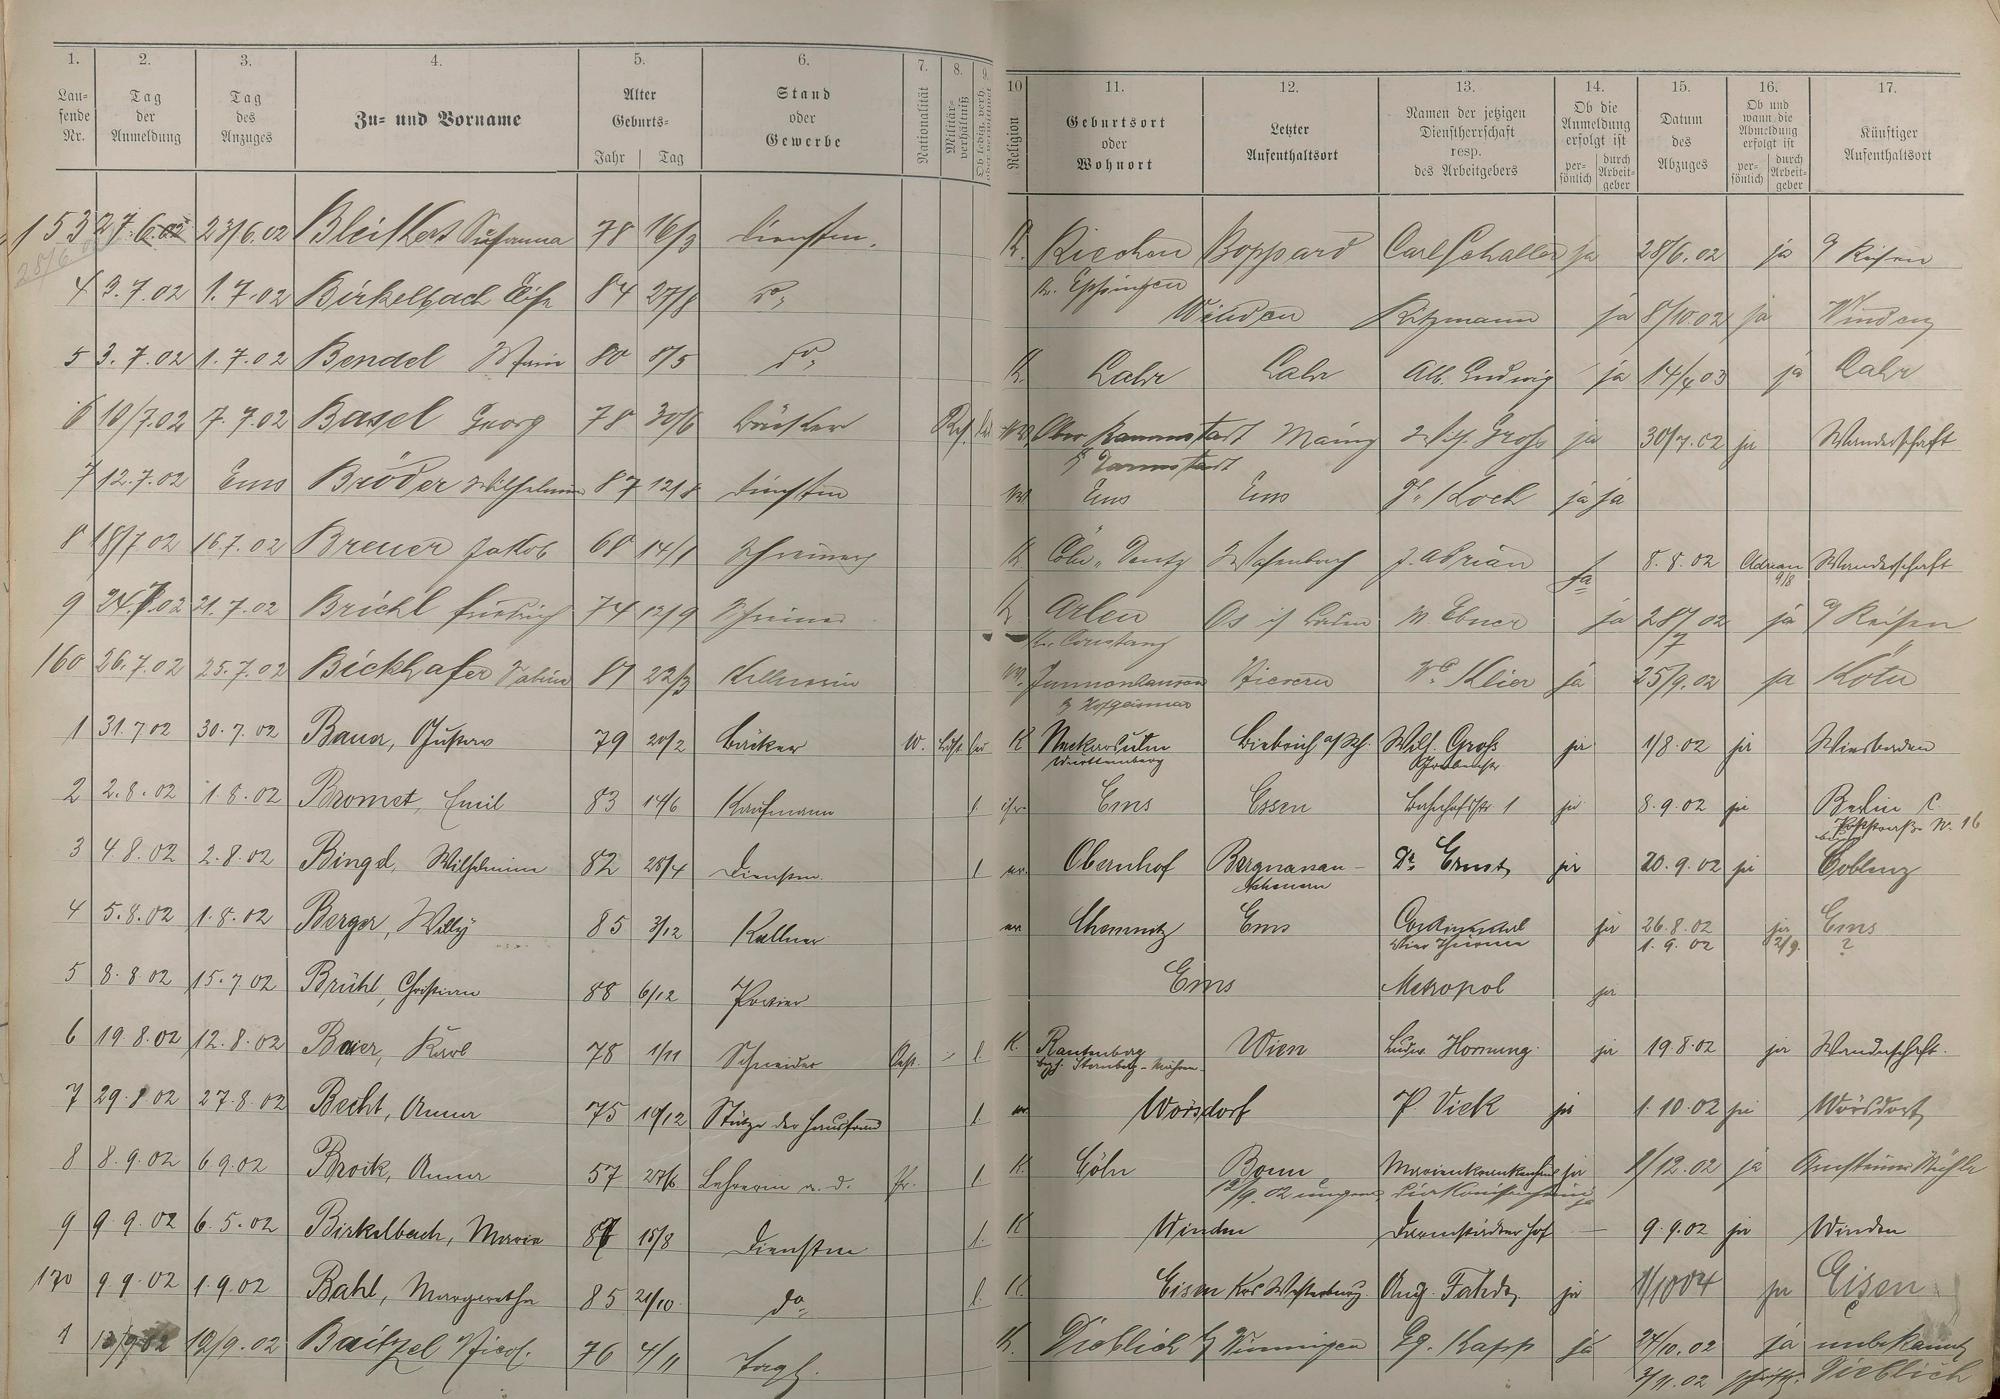 1. 2. 3. 4. 5. 6. 7. 8. 9.
Lau-
fende
Nr.
Tag
der
Anmeldung
Tag
des
Anzuges
Zu- und Vorname
Alter
Geburts-
Jahr Tag
Stand
oder
Gewerbe
Nationalität
Militär-
verhältniß
10 11. 12. 13. 14. 15. 16. 17.
Religion
Geburtsort
oder
Wohnort
Letzter
Aufenthaltsort
Namen der jetzigen
Dienstherrschaft
resp.
des Arbeitgebers
Ob die
Anmeldung
erfolgt ist
per-
sönlich
durch
Arbeit-
geber
Datum
des
Abzuges
Ob und
wann die
Abmeldung
erfolgt ist
per-
sönlich
durch
Arbeit-
geber
Künftiger
Aufenthaltsort
153 27.6.02 23/6.02 Susanna 78 16/3 Dienstm. K. Riechen Boppard Carl Schaller ja 28/6.02 ja Reisen
Kr. Eppingen
4 3.7.02 1.7.02 Birkelbach 84 27/8 do Winden Ritzmann ja 8/10.02 ja Winden
5 3.7.02 1.7.02 Bendel 80 8/5 do K. Lahr Lahr Alb. Ludwig ja 14/4 03 ja Lahr
6 10/7.02 7.7.02 Basel Georg 78 30/6 Ober Rammstadt Mainz Gross ja 30/7.02 ja Wanderschaft
Darmstadt
7 12.7.02 Ems Bröder Wilhelmine 87 12/8 Dienstm Ems Ems Koch ja ja
8 18/7 02 16.7.02 Breuer Jakob 68 14/1 Schreiner K Cöln-Deutz J. Adrian ja 8.8.02 Adrian Wanderschaft
9/8
9 24.7.02 21.7.02 Brichl Friedrich 74 12/9 Schreiner K Arlen M. Ebner ja 28/7 02 ja Reisen
Kr. Constanz
160 26.7.02 25.7.02 Bickhafer 81 22/3 Kellnerin Viersen Wwe Meier ja 25/9.02 ja Köln
Hofgeismar
1 31.7 02 30.7.02 Bauer, Gustav 79 20/2 Bäcker W. K Neckarsulm Biebrich a/Rh. Wilh. Gross ja 1/8.02 ja Wiesbaden
Württemberg
2 2.8.02 1.8.02 Bromet, Emil 83 14/6 Kaufmann l. isr. Ems Essen Bahnhofstr. 1 ja 8.9.02 ja Berlin C.
Poststraße N. 16
3 4.8.02 2.8.02 Bingel, Wilhelmine 82 28/4 Dienstm. l. ev. Obernhof Bergnassau- Dr. Ernst ja 20.9.02 ja Coblenz
Scheuern
4 5.8.02 1.8.02 Berger, Willy 85 3/12 Kellner ev. Chemnitz Ems Continental ja 26.8.02 ja Ems
Vier Thürme 1.9.02 2/9. ?
5 8.8 02 15.7 02 Brühl, Christian 88 6/12 Portier Ems Metropol ja
6 19.8.02 12.8.02 Baier, Karl 78 1/11 Schneider l. K. Rautenberg Wien Ludw. Hornung. ja 19.8.02 ja Wanderschaft.
Bez. Sternberg-Mähren
7 29.8 02 27.8.02 Becht, Anna 75 10/12 Stütze der Hausfrau l. ev Wörsdorf P. Vick ja 1.10.02 ja Wörsdorf
8 8.9.02 6 9.02 Broik, Anna 57 27/6 Lehrerin a. D. Pr. l. K. Cöln Bonn Marienkrankenhaus ja 1/12.02 ja Arnsteiner Mühle
12/9.02
9 9.9.02 6.5.02 Birkelbach, Maria 84 15/8 Dienstm l. K Winden Darmstädter Hof — 9.9.02 ja Winden
170 9.9.02 1.9.02 Bahl, Margaretha 85 21/10 do l. K. Eisen Krs Westerburg Aug. ja 1/10 04 ja Eisen
1 12/9 02 12/9.02 Baitzel Nicol. 76 4/11 Tagl. K. Dieblich Winningen Gg. Kapp ja 24/10.02 ja unbekannt
3/11.02 Dieblich